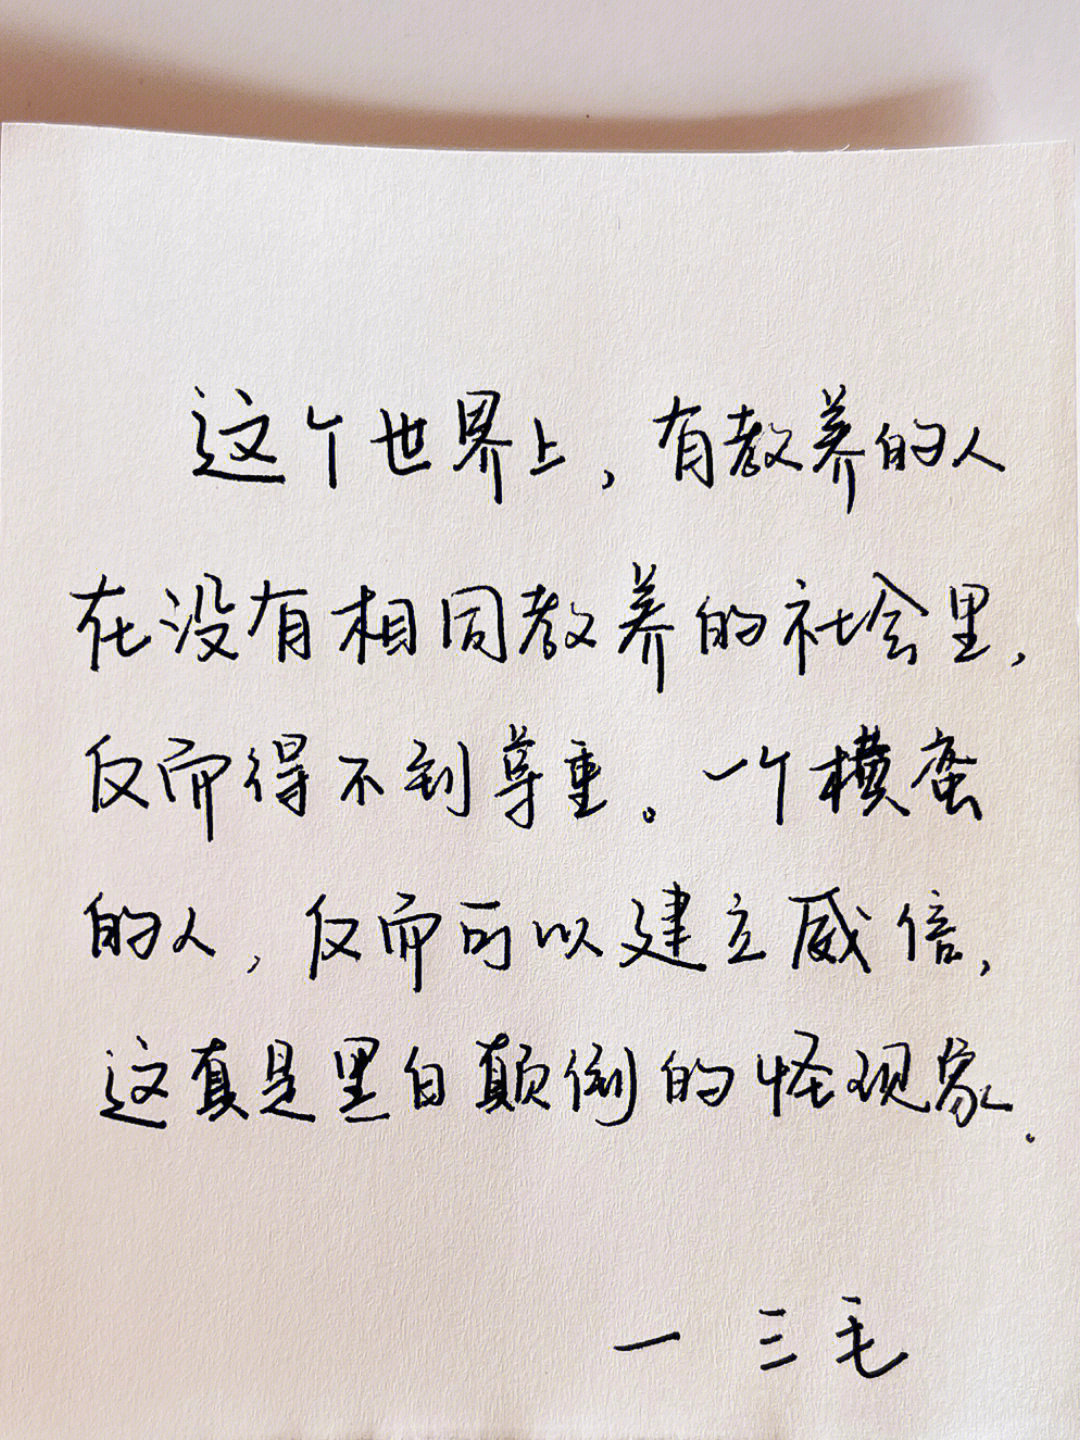 这个世界上，有教养的人
在没有相同教养的社会里，
反而得不到尊重。一个横蛮
的人，反而可以建立威信，
这真是黑白颠倒的怪现象.
一 三毛